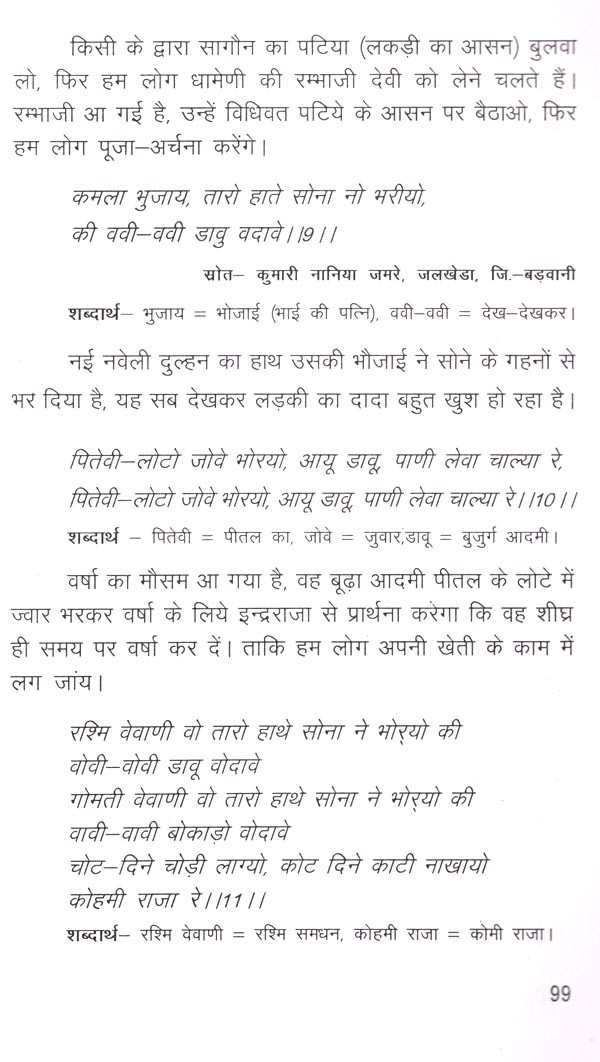 किसी के द्वारा सागौन का पटिया (लकड़ी का आसन) बुलवा
लो, फिर हम लोग धामेणी की रम्भाजी देवी को लेने चलते हैं।
रम्भाजी आ गई है, उन्हें विधिवत पटिये के आसन पर बैठाओ, फिर
हम लोग पूजा–अर्चना करेंगे।
कमला भुजाय, तारो हाते सोना नो भरीयो,
की ववी–ववी डावु वदावे।।9।।
स्रोत– कुमारी नानिया जमरे, जलखेडा, जि.–बड़वानी
शब्दार्थ– भुजाय = भोजाई (भाई की पत्नि), ववी–ववी = देख–देखकर।
नई नवेली दुल्हन का हाथ उसकी भौजाई ने सोने के गहनों से
भर दिया है, यह सब देखकर लड़की का दादा बहुत खुश हो रहा है।
पितेवी–लोटो जोवे भोरयो, आयू डावू, पाणी लेवा चाल्या रे,
पितेवी–लोटो जोवे भोरयो, आयू डावू, पाणी लेवा चाल्या रे।।10।।
शब्दार्थ – पितेवी = पीतल का, जोवे = जुवार,डावू = बुजुर्ग आदमी।
वर्षा का मौसम आ गया है, वह बूढ़ा आदमी पीतल के लोटे में
ज्वार भरकर वर्षा के लिये इन्द्रराजा से प्रार्थना करेगा कि वह शीघ्र
ही समय पर वर्षा कर दें। ताकि हम लोग अपनी खेती के काम में
लग जांय।
रश्मि वेवाणी वो तारो हाथे सोना ने भोर्‌यो की
वोवी–वोवी डावू वोदावे
गोमती वेवाणी वो तारो हाथे सोना ने भोर्‌यो की
वावी–वावी बोकाड़ो वोदावे
चोट–दिने चोड़ी लाग्यो, कोट दिने काटी नाखायो
कोहमी राजा रे।।11।।
शब्दार्थ– रश्मि वेवाणी = रश्मि समधन, कोहमी राजा = कोमी राजा।
99